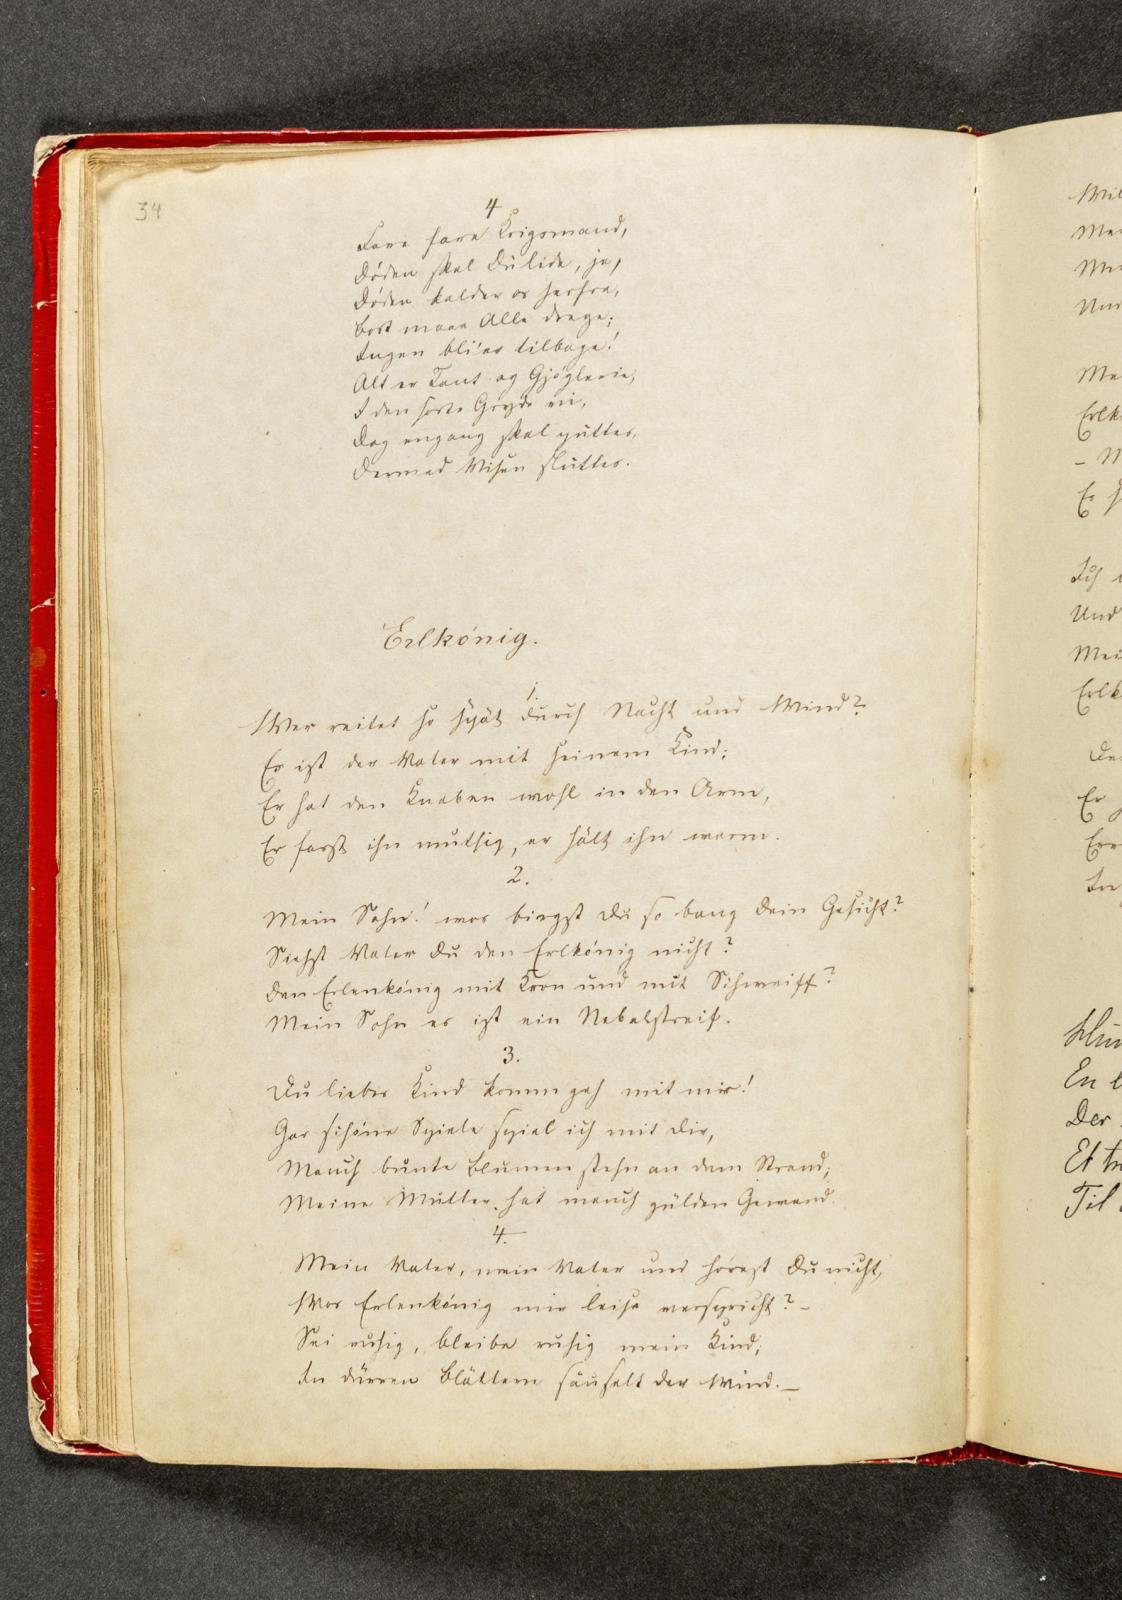 34
4
Fare fare Krigsmand,
Døden skal du lide, ja,
Døden kalder os herfra,
Bort maae Alle drage;
Ingen bli'er tilbage!
Alt er Tant og Gjøglerie,
I den sorte Gryde vi,
Dog engang skal puttes,
Dermed Visen sluttes.
Erlkönig.
1.
Wer reitet so spät durch Nacht und Wind?
Es ist der Vater mit seinem Kind;
Er hat den Knaben wohl in den Arm,
Er fasst ihn muthig, er hält ihn warm.
2.
Mein Sohn! was birgst du so bang dein Gesicht?
Siehst Vater du den Erlkönig nicht?
Den Erlenkönig mit Kron und mit Schweiff?
Mein Sohn es ist ein Nebelstreif.
3.
Du liebes Kind komm geh mit mir!
Gar schöne Spiele spiel ich mit dir,
Manch bunte Blumen stehn an dem Strand;
Meine Mutter hat manch gülden Gewand.
4.
Mein Vater, mein Vater und hörest du nicht,
Was Erlenkönig mir leise verspricht? –
Sei ruhig, bleibe ruhig mein Kind;
In dürren Blättern säuselt der Wind. –
Und
Erlk
Ich
Und
Mei
Erlk
Er
En
Der
Et
Til